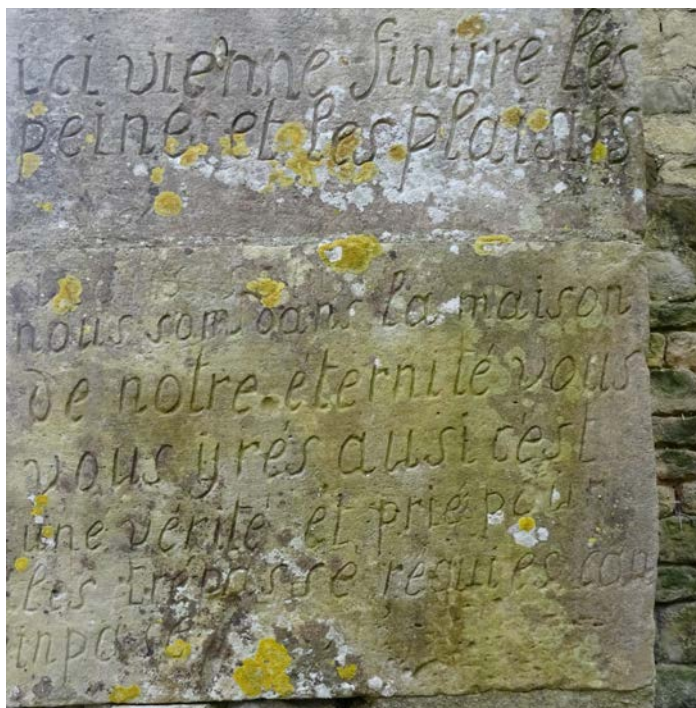 ici vienne finirre les
peines et les plaisirs
nous soms dans la maison
de notre éternité vous
vous yrés ausi c'est
une vérité et prie pour
les trépasse réquies can
inpace